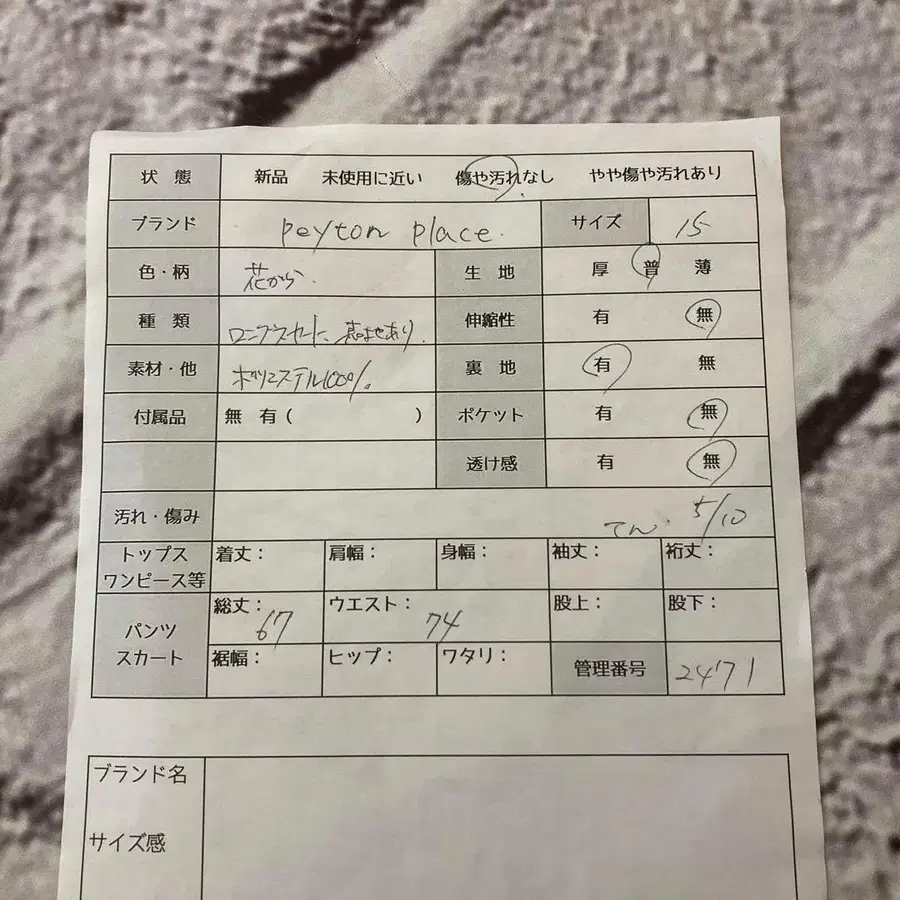 状態 新品 未使用に近い 傷や汚れなし やや傷や汚れあり
ブランド peyton place. サイズ 15
色・柄 花がら. 生地 厚 普 薄
種類 ロングスカート、裏地あり. 伸縮性 有 無
素材・他 ポリエステル100%. 裏地 有 無
付属品 無 有 ( ) ポケット 有 無
透け感 有 無
汚れ・傷み てん. 5/10
トップス ワンピース等 着丈: 肩幅: 身幅: 袖丈: 裄丈:
パンツ スカート 総丈: 67 ウエスト: 74 股上: 股下:
裾幅: ヒップ: ワタリ: 管理番号 2471
ブランド名
サイズ感